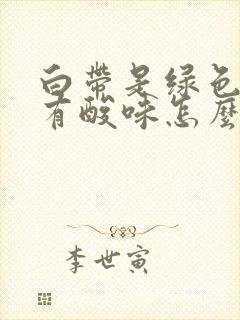 白帶是绿色
有酸味怎麽
李世寅